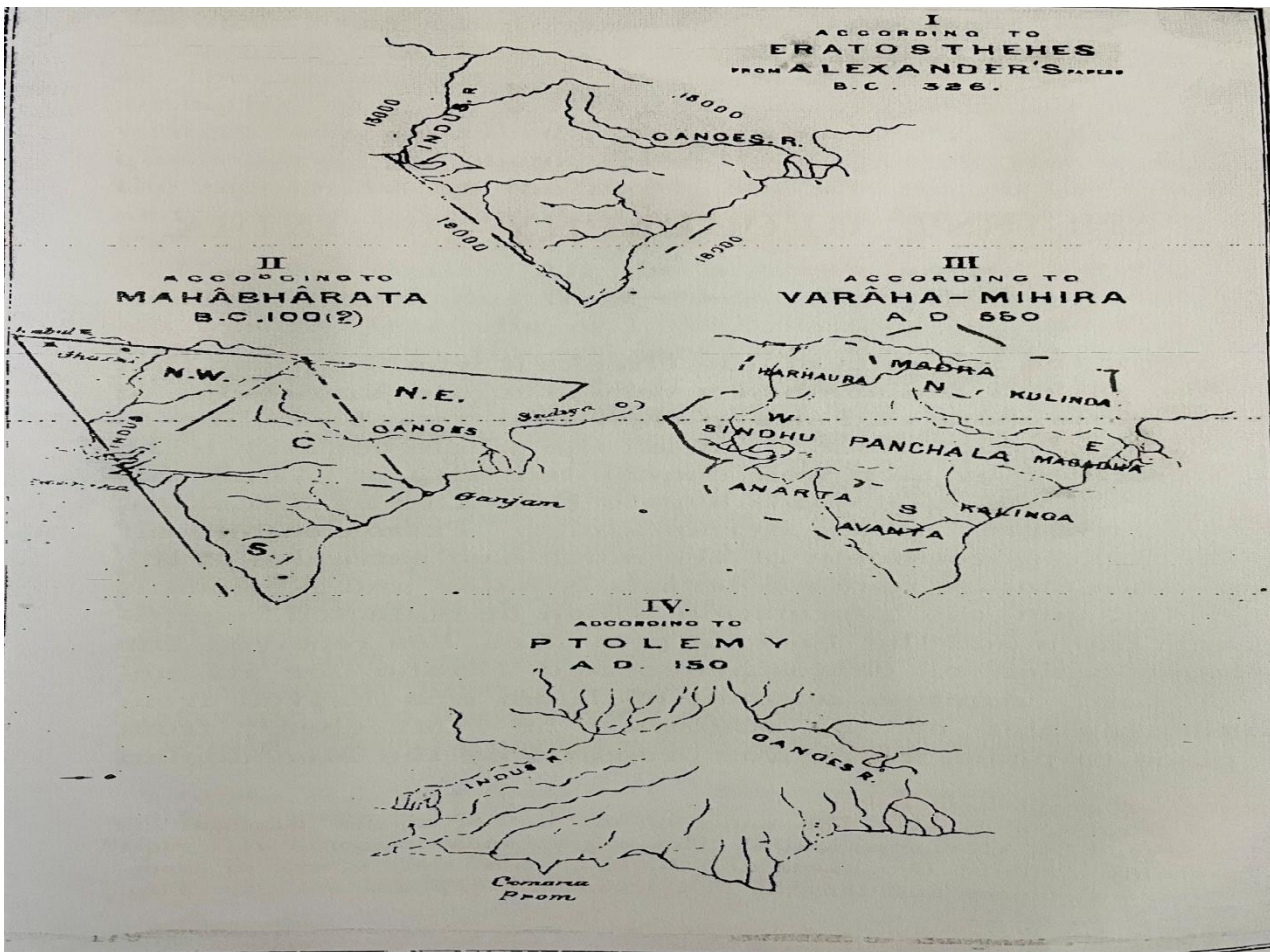 I
ACCORDING TO
ERATOSTHEHES
FROM ALEXANDER'S PAPERS
B.C. 326.
13000
INDUS. R
16000
GANGES. R.
18000
18000
II
ACCORDING TO
MAHÂBHÂRATA
B.C.100(?)
N.W.
N.E.
INDUS
C
GANGES
Ganjam
S.
III
ACCORDING TO
VARÂHA-MIHIRA
A D 550
HARHAURA
MADRA
N
KULINDA
W
SINDHU
PANCHALA
E
MAGADHA
ANARTA
S
KALINGA
AVANTA
IV.
ACCORDING TO
PTOLEMY
A D. 150
INDUS R.
GANGES R.
Comaria
Prom